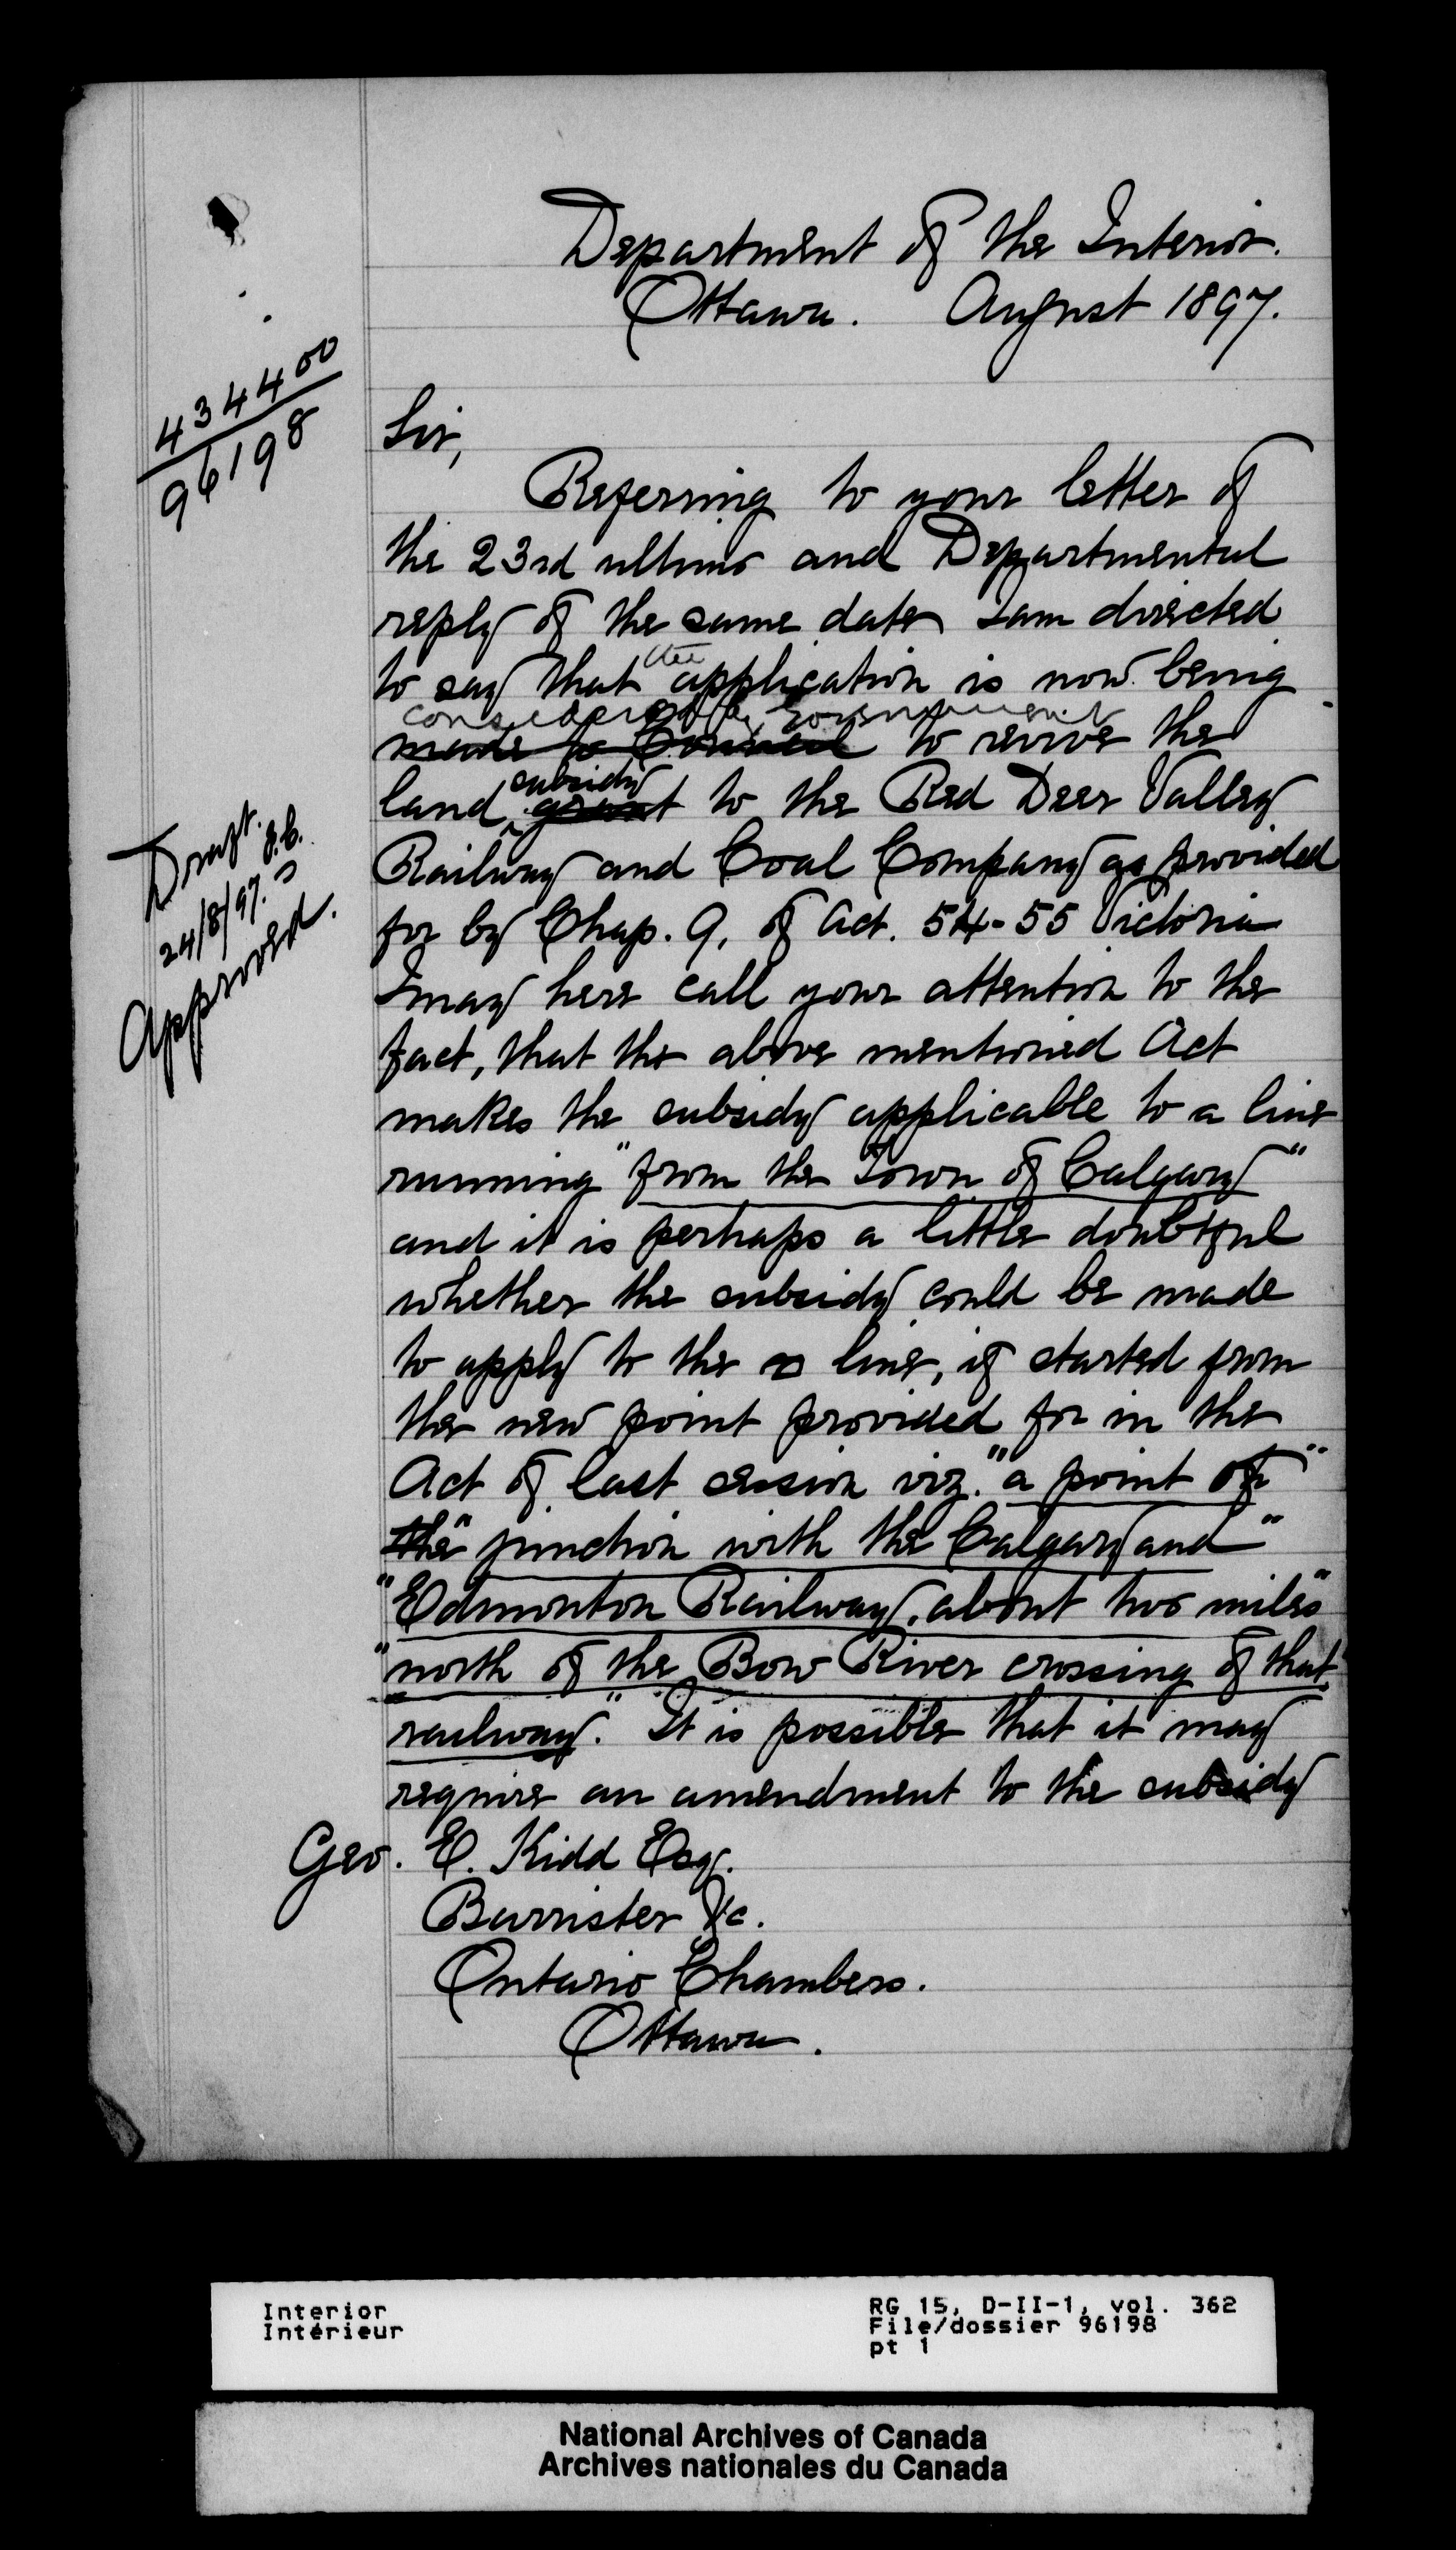 Department of the Interior.
Ottawa. August 1897.
434400
96198
Sir,
Referring to your letter of
the 23rd ultimo and Departmental
reply of the same date I am directed
to say that the application is now being
considered by Government
made to Council to revive the
subsidy
land grant to the Red Deer Valley
Railway and Coal Company as provided
for by Chap. 9, of Act. 54-55 Victoria
I may here call your attention to the
fact, that the above mentioned Act
makes the subsidy applicable to a line
running "from the Town of Calgary"
and it is perhaps a little doubtful
whether the subsidy could be made
to apply to the line, if started from
the new point provided for in the
Act of last session viz. "a point of"
the "junction with the Calgary and"
"Edmonton Railway, about two miles"
"north of the Bow River crossing of that
railway." It is possible that it may
require an amendment to the subsidy
Geo. E. Kidd Esq.
Barrister &c.
Ontario Chambers.
Ottawa.
Draft.
24/8/97.
Approved.
Interior
Intérieur
RG 15, D-II-1, vol. 362
File/dossier 96198
pt 1
National Archives of Canada
Archives nationales du Canada